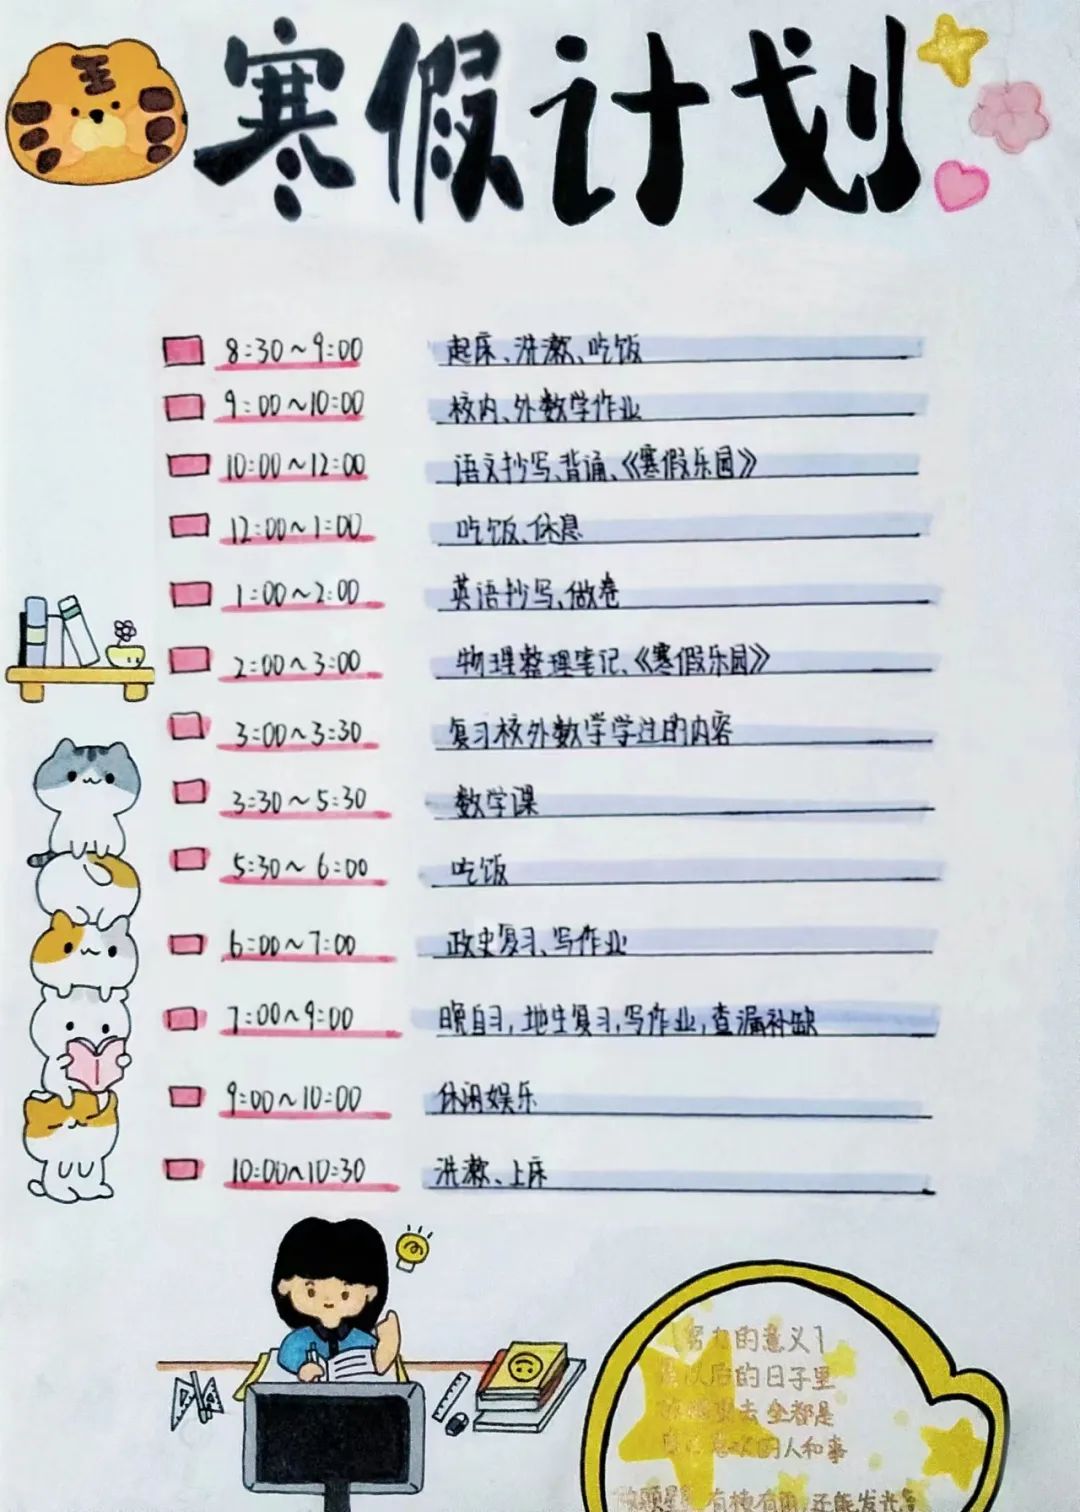 寒假计划
王
8:30~9:00 起床、洗漱、吃饭
9:00~10:00 校内、外数学作业
10:00~12:00 语文抄写、背诵、《寒假乐园》
12:00~1:00 吃饭、休息
1:00~2:00 英语抄写、做卷
2:00~3:00 物理整理笔记、《寒假乐园》
3:00~3:30 复习校外数学学过的内容
3:30~5:30 数学课
5:30~6:00 吃饭
6:00~7:00 政史复习、写作业
7:00~9:00 晚自习,地生复习,写作业,查漏补缺
9:00~10:00 休闲娱乐
10:00~10:30 洗漱、上床
努力的意义
以后的日子里
去全都是
的人和事
做颗星 有棱有角 还能发光